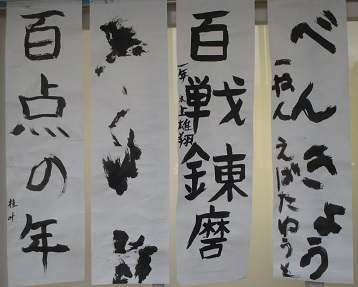 べんきょう
一ねん えばたゆうと
百戦錬磨
一年 木上雄翔
百点の年
桂叶